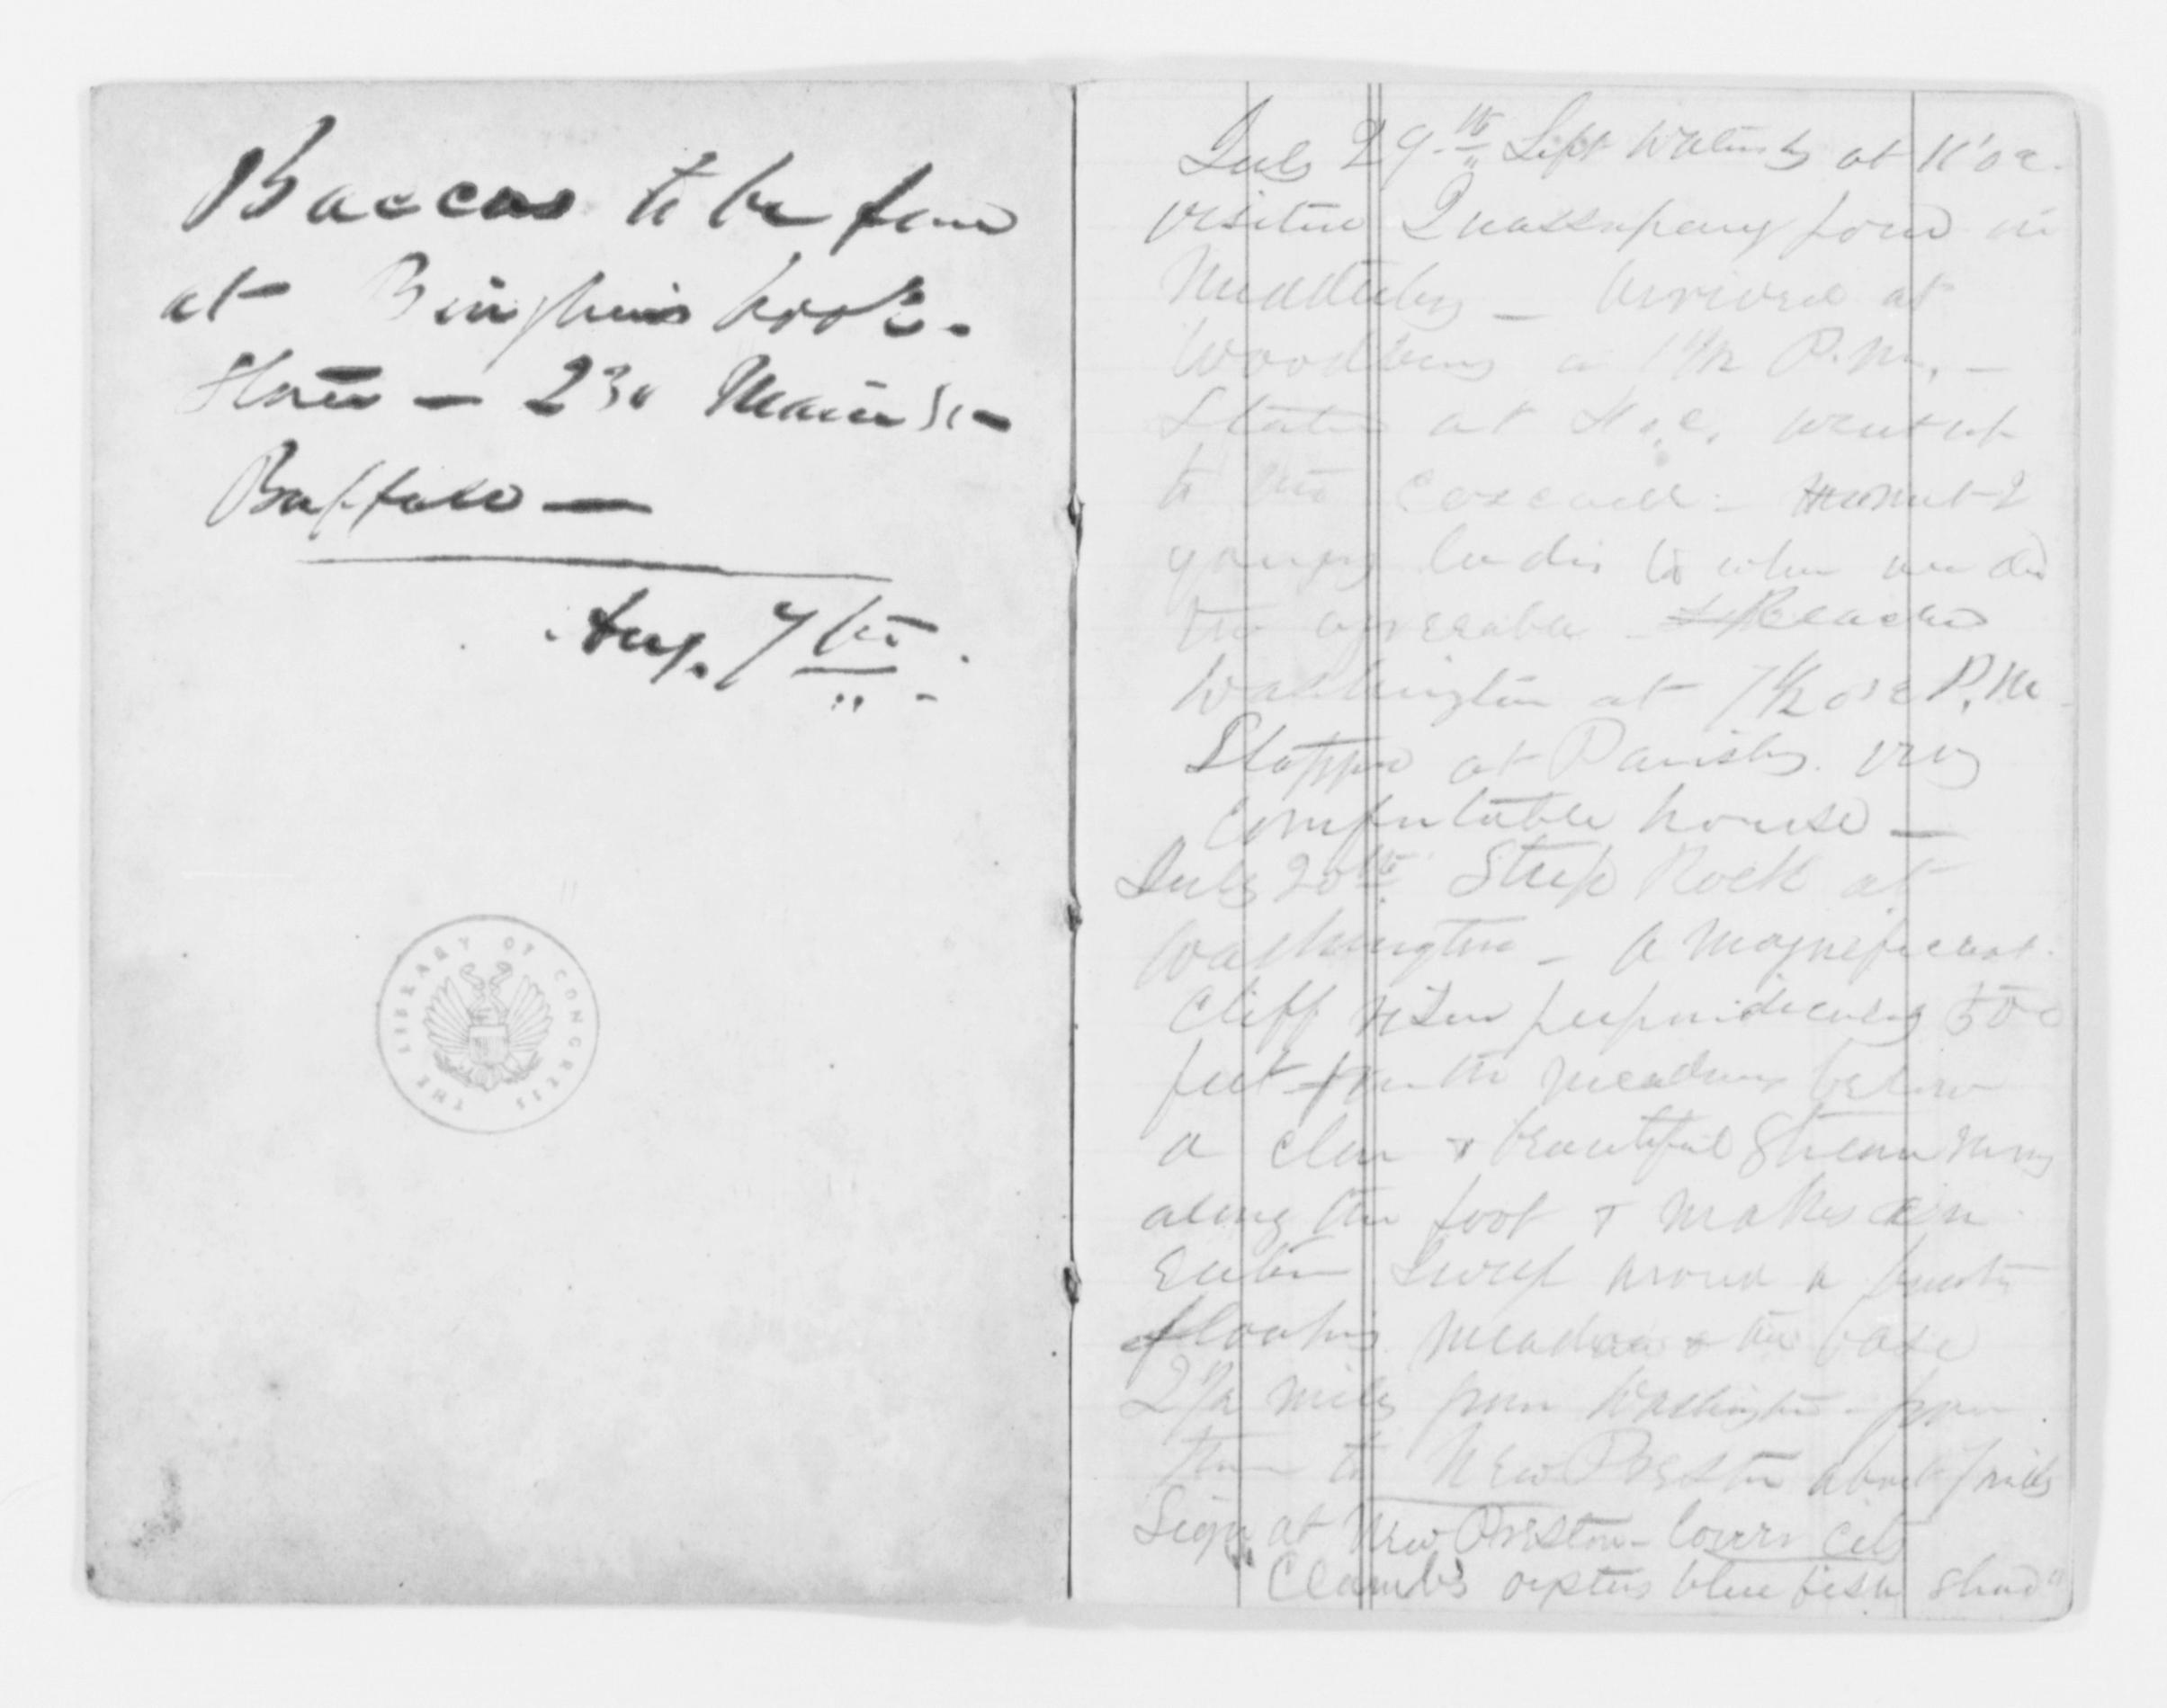 Baccus to be found
at Bingham's book-
Store — 230 Main St —
Buffalo —
Aug. 7th
THE LIBRARY OF CONGRESS
July 29th Left Waterby at 11 'oc.
visited Quassapaug pond in
Middleby — arrived at
Woodbury a 1 1/2 P.M. —
Started at o.c. went up
to the cascade — met 2
young ladies to whom we did
the agreeable — Reached
Washington at 7 1/2 o'c P.M.
Stopped at Parishs. very
comfortable house —
July 30th Steep Rock at
Washington — A magnificent
Cliff rises perpendiculary 500
feet from the meadows below
a clear & beautiful Stream runs
along the foot & makes an
entire Sweep around a
floating meadow & the base
2 1/2 miles from Washington — from
there to New Preston about 7 miles
Sign at New Preston — lower City
Clambs oysters blue fish shad"